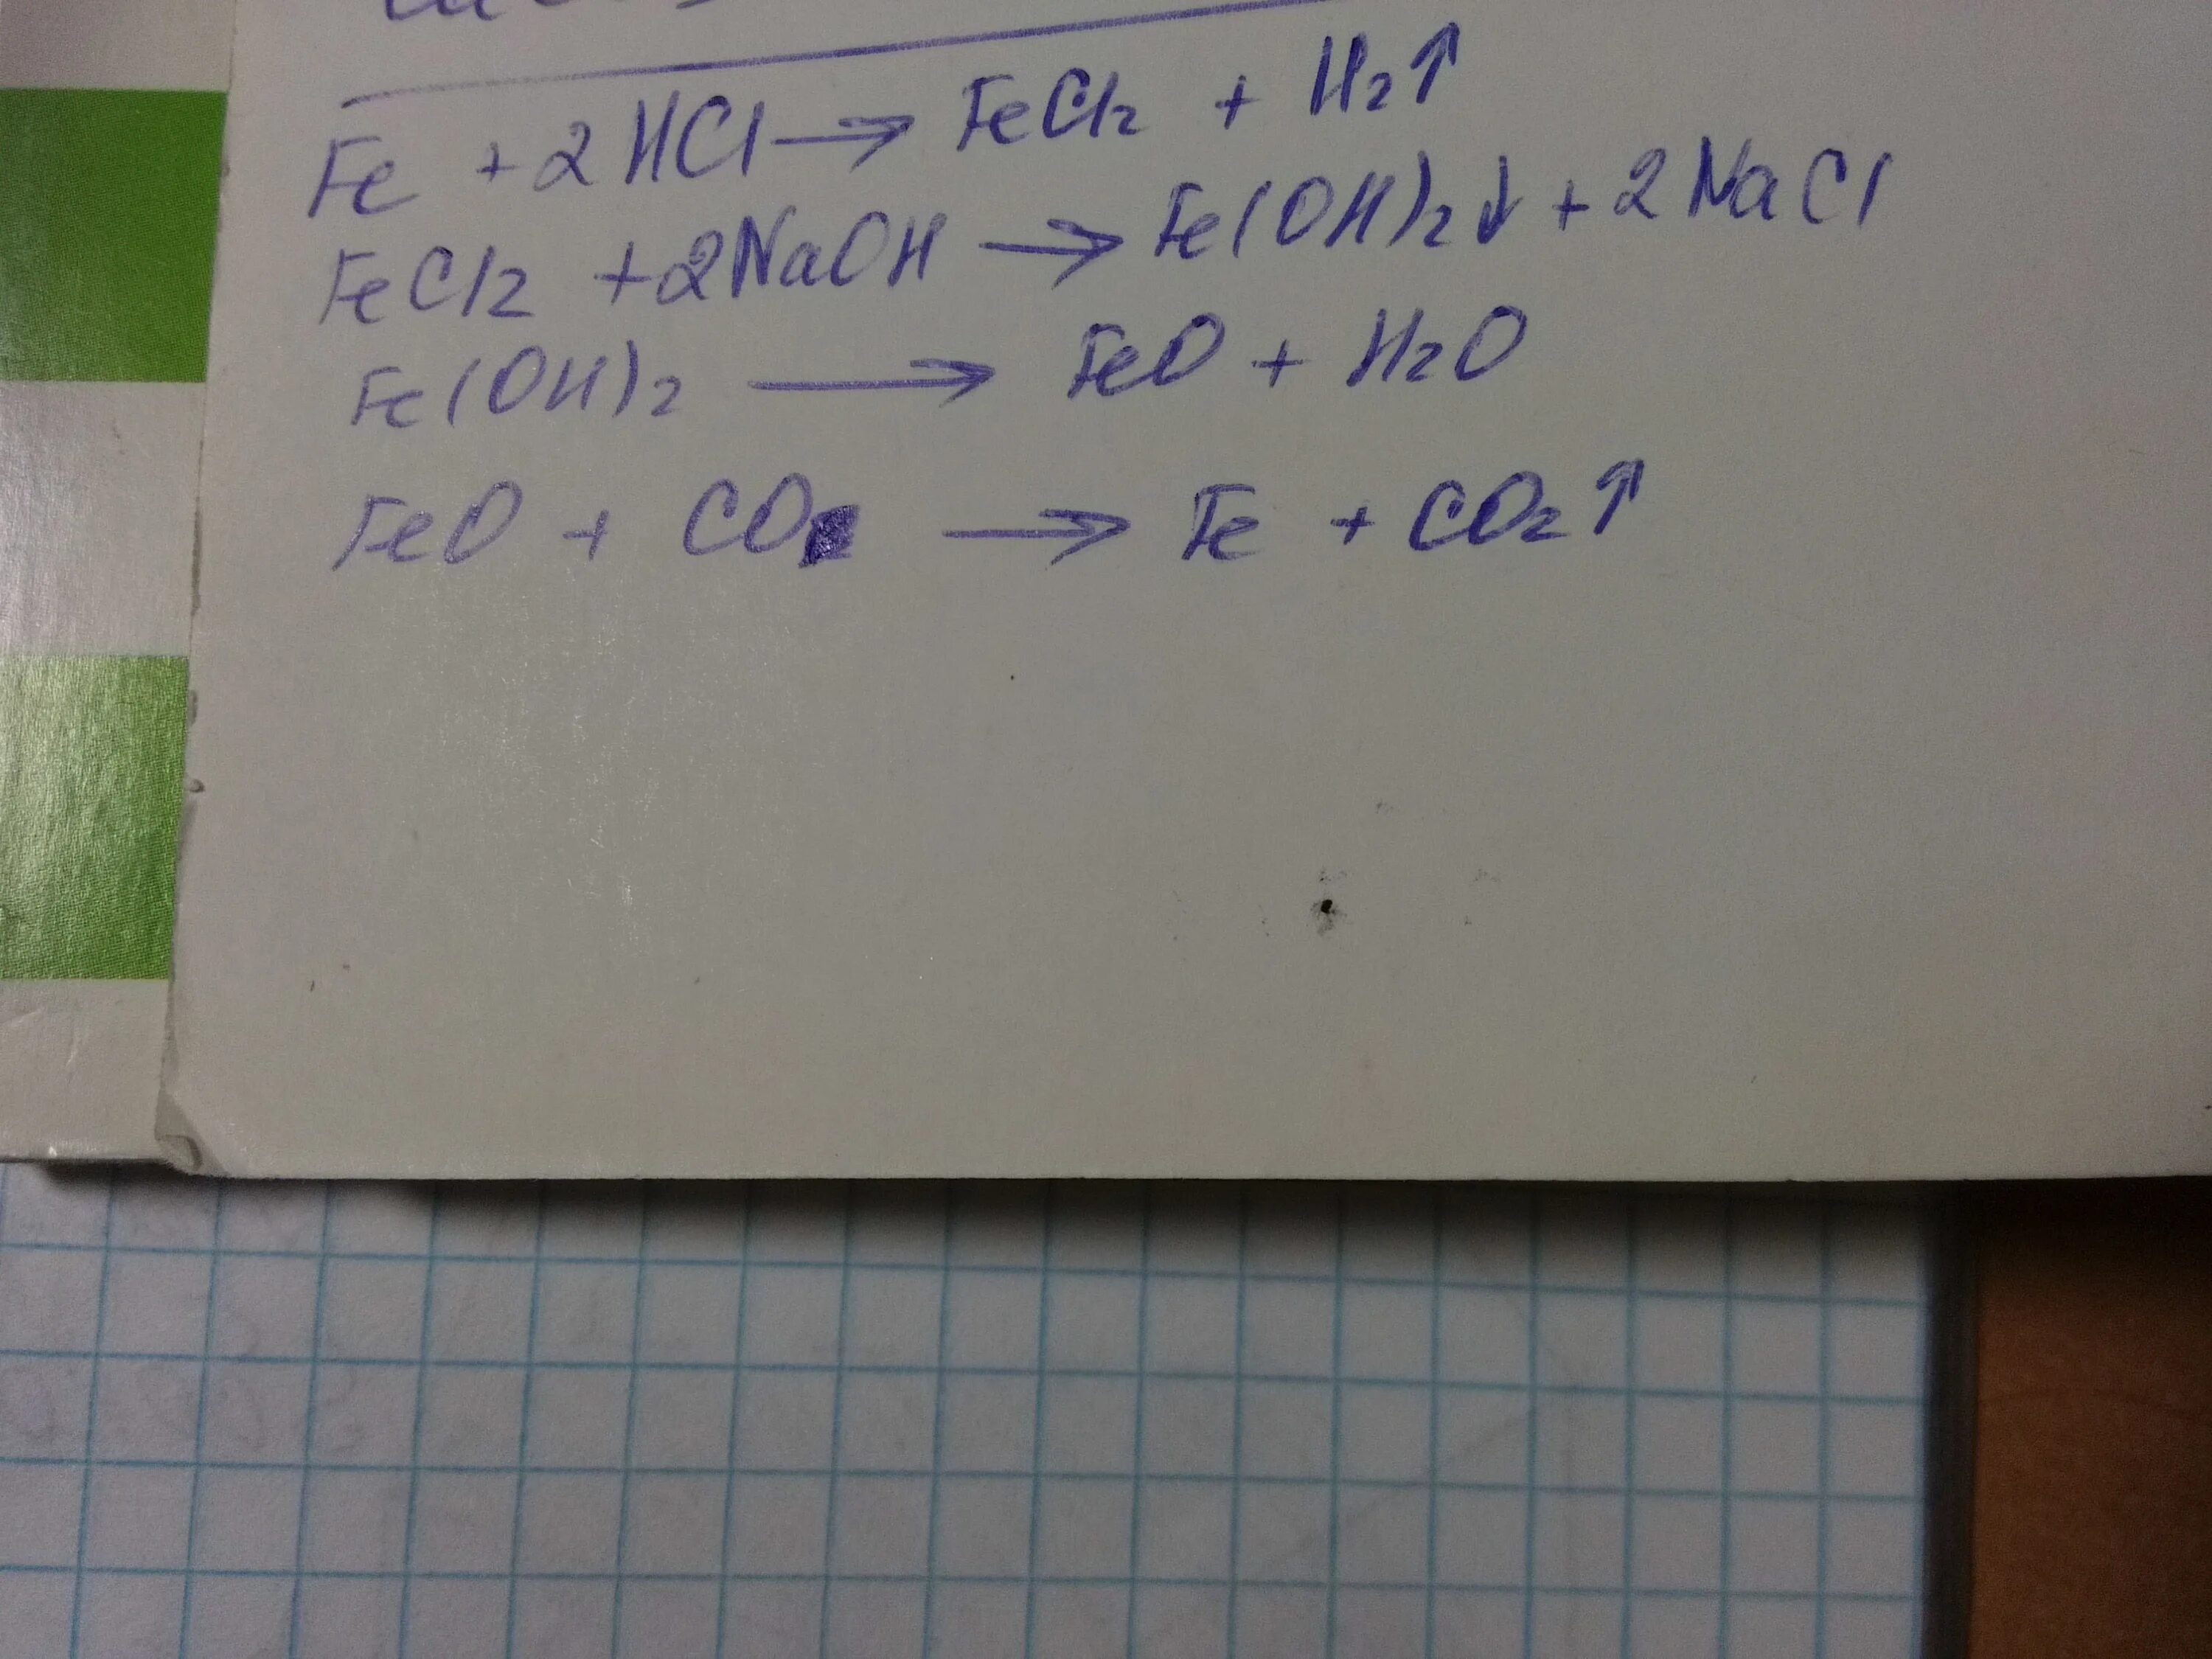 Fe + 2HCl → FeCl₂ + H₂↑
FeCl₂ + 2NaOH → Fe(OH)₂↓ + 2NaCl
Fe(OH)₂ → FeO + H₂O
FeO + CO → Fe + CO₂↑